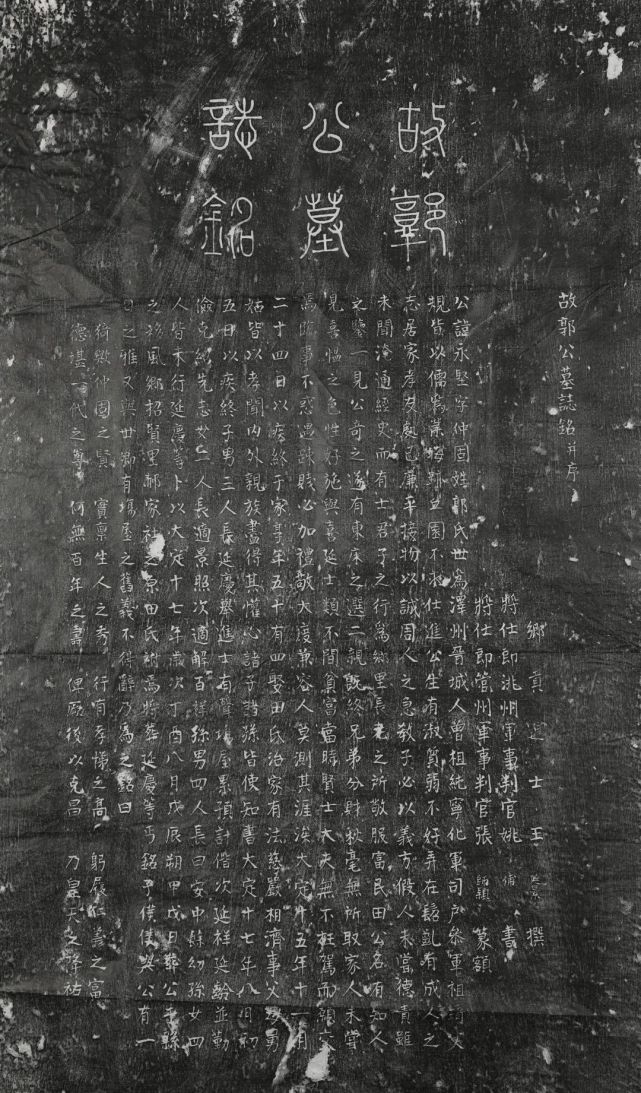 故郭
公墓
誌銘
故郭公墓誌銘并序
鄉貢進士王 撰
將仕郎洮州軍事判官姚 書
將仕郎管州軍事判官張 篆額
公諱永堅字仲固姓郭氏世為澤州晉城人曾祖純寧化軍司戶參軍祖 父
規皆以儒為業 丘園不求仕進公生有淑質弱不好弄在髫齓有成人之
志居家孝友處己廉平接物以誠周人之急教子必以義方假人未嘗德責雖
未聞淹通經史而有士君子之行為鄉里長老之所敬服富民田公名有知人
之鑒一見公奇之遂有東床之選二親既終兄弟分財秋毫無所取家人未嘗
見喜慍之色性好施與喜延士類不間貧富當時賢士大夫無不枉駕而顧之
焉臨事不惑遇疎賤必加禮敬大度兼容人莫測其涯涘大定十五年十一月
二十四日以疾終于家享年五十有四娶田氏治家有法慈嚴相濟事父母舅
姑皆以孝聞內外親族盡得其懽心諸子諸孫皆使知書大定十七年八月初
五日以疾終子男三人長延慶舉進士有聲場屋累預計偕次延祥延齡並勤
儉克紹先志女二人長適景照次適解百祥孫男四人長曰安中餘幼孫女四
人皆未行延慶等卜以大定十七年歲次丁酉八月戊辰朔甲戌日葬公于縣
之移風鄉招賢里郝家社之原田氏祔焉將葬延慶等丐銘于僕僕與公有一
日之雅又與世卿有場屋之舊義不得辭乃為之銘曰
猗歟仲固之賢 實稟生人之秀 行有孝悌之高 躬履仁義之富
德堪一代之尊 何無百年之壽 俾厥後以克昌 乃皇天之降祐